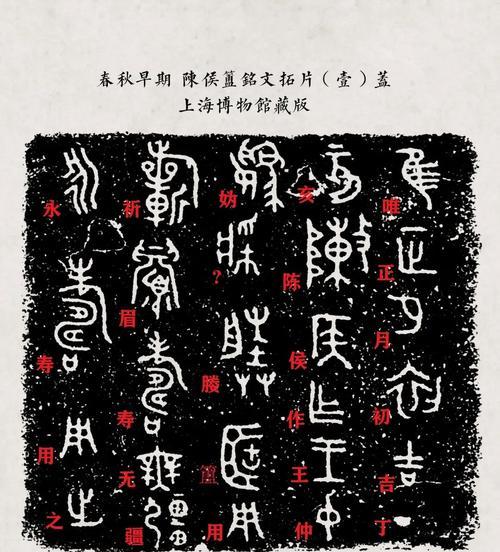 春秋早期 陳侯簠銘文拓片（壹）蓋
上海博物館藏版
唯正月初吉丁
亥陈侯作王仲
妫?媵簠用
祈眉寿无疆
永寿用之